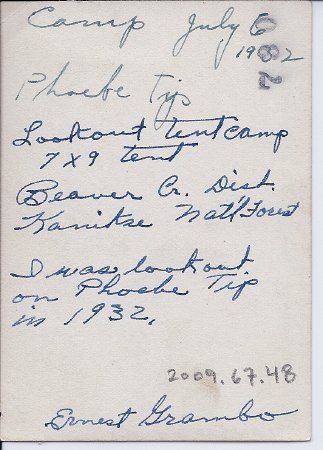 Camp July 6
1932
782
Phoebe Tip
Lookout tent camp
7 x 9 tent
Beaver Cr. Dist.
Kanikse Nat'l Forest
I was lookout
on Phoebe Tip
in 1932.
2009.67.48
Ernest Grambo